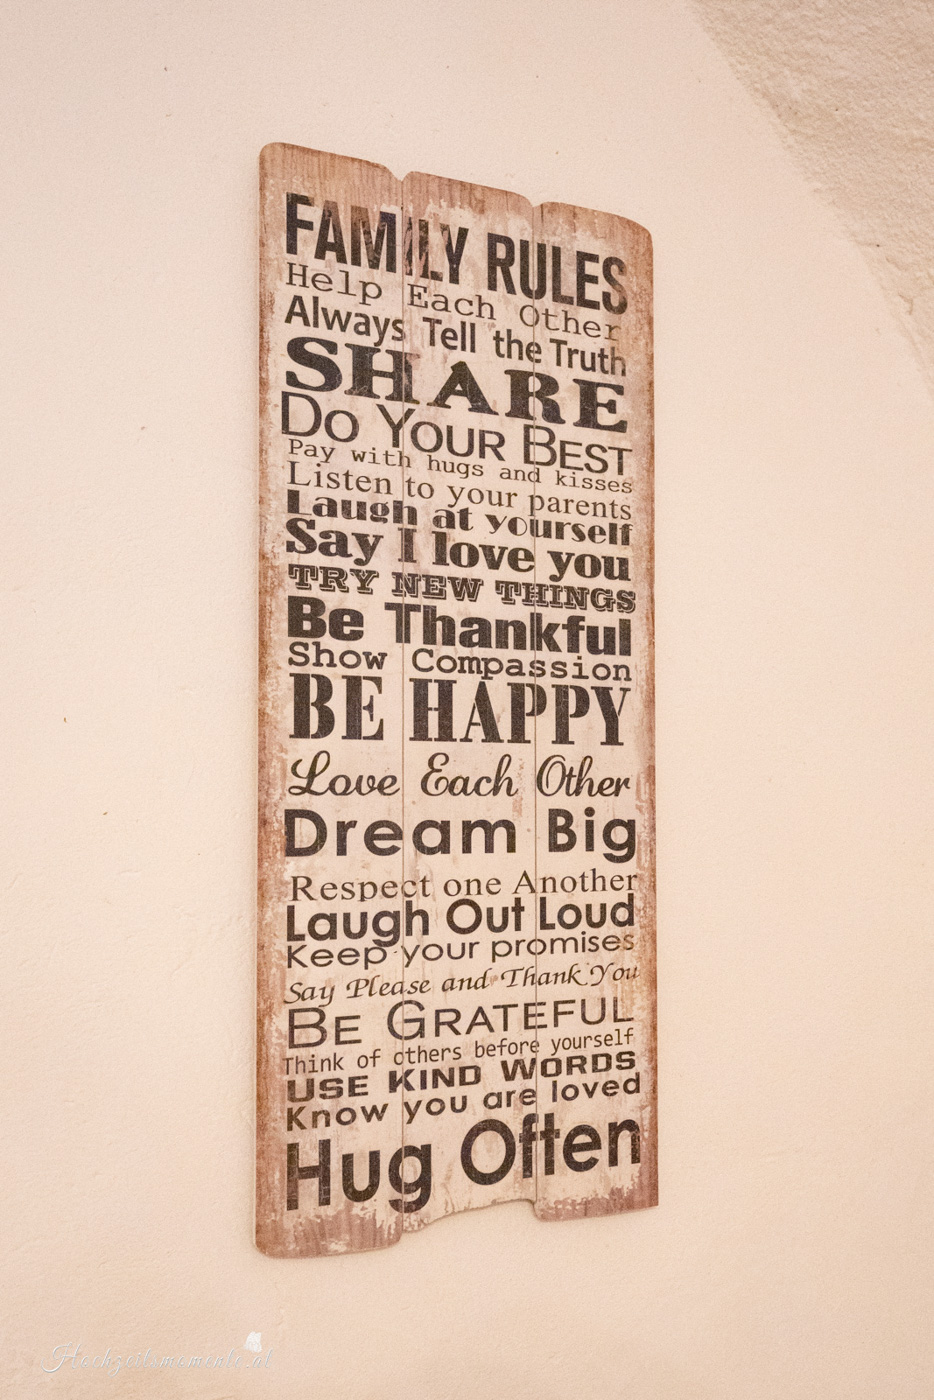 FAMILY RULES
Help Each Other
Always Tell the Truth
SHARE
DO YOUR BEST
Pay with hugs and kisses
Listen to your parents
Laugh at yourself
Say I love you
TRY NEW THINGS
Be Thankful
Show Compassion
BE HAPPY
Love Each Other
Dream Big
Respect one Another
Laugh Out Loud
Keep your promises
Say Please and Thank You
BE GRATEFUL
Think of others before yourself
USE KIND WORDS
Know you are loved
Hug Often
Hochzeitsmomente.at